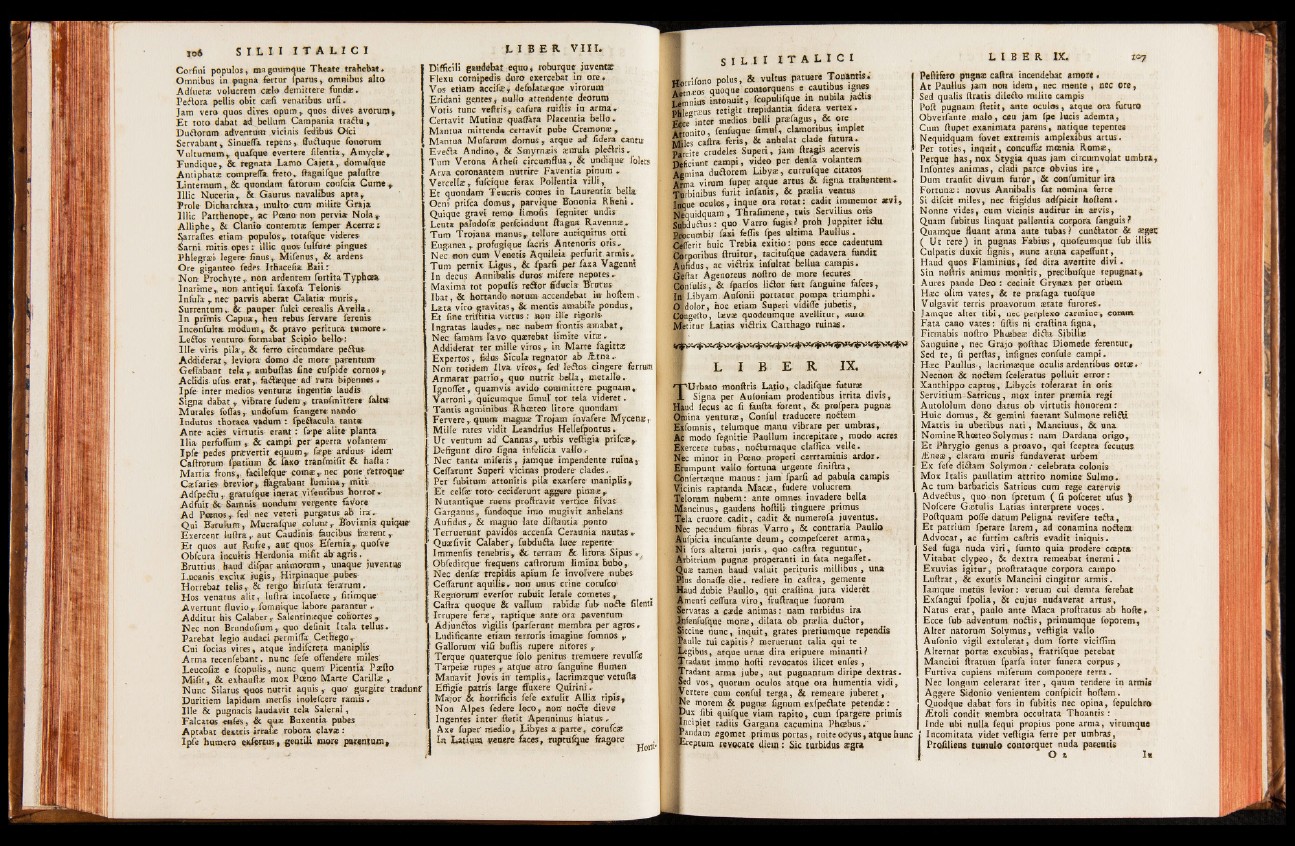 106 SILII ITALICI
Corfini populos, magnumque Theate trahebat.
Omnibus in pugna fertur sparus, omnibus alto
Adsuetæ volucrem cælo demittere fundæ.
Pectora pellis obit cæsi venatibus ursi.
Jam vero quos dives opum, quos dives avorum,
Et toto dabat ad bellum Campania tractu,
Ductorum adventum vicinis sedibus Osci
Servabant, Sinuessa tepens, fluctuque sonorum
Vulturnum, quasque evertere silentia, Amyclæ,
Fundique, & regnata Lamo Cajeta, domusque
Antiphatæ compressa freto, stagnisque palustre
Linternum, & quondam fatorum conscia Cume,
Illic Nuceria, & Gaurus navalibus apta,
Prole Dicharchæa, multo cum milite Graja
Illic Parthenope, ac Pœno non pervia Nola,
Alliphe, & Clanio contemtæ semper Acerræ:
Sarrastes etiam populos, totasque videres
Sarni mitis opes: illic quos sulfure pingues
Phlegræi legere sinus, Misenus, & ardens
Ore giganteo sedes Ithacesia Baii:
Non Prochyte, non ardentem sortita Typhœa
Inarime, non antiqui saxosa Telonis
Insula, nec parvis aberat Calatia muris,
Surrentum, & pauper sulci cerealis Avella.
In primis Capua, heu rebus servare serenis
Inconsulta modum, & pravo peritura tumore.
Lectos venturo formabat Scipio bello:
Ille viris pila, & ferro circumdare pectus
Addiderat, leviora domo de more parentum
Gestabant tela, ambustas sine cuspide cornos,
Aclidis usus erat, factæque ad rura bipennes.
Ipse inter medios venturæ ingentia laudis
Signa dabat, vibrare sudem, transmittere saltu
Murales fossas, undosum frangere nando
Indutus thoraca vadum: spectacula tanta
Ante acies virtutis erant: sæpe alite planta
Ilia perfossum, & campi per aperta volantem
Ipse pedes prævertit equum, sæpe arduus idem
Castrorum spatium & saxo transmisit & hasta:
Martia frons, facilesque comæ, nec pone retroque
Cæsaries brevior, flagrabant lumina, miti
Adspectu, gratusque inerat visentibus horror.
Adfuit & Samnis nondum vergente favore
Ad Pœnos, sed nec veteri purgatus ab ira.
Qui Batulum, Mucrasque colunt, Bovixmia quique
Exercent lustra, aut Caudinis faucibus hærent,
Et quos aut Rufræ, aut quos Esernia, quosve
Obscura incultis Herdonia misit ab agris.
Bruttius haud dispar animorum, unaque juventus
Lucanis excita jugis, Hirpinaque pubes
Horrebat telis, & tergo hirsuta ferarum.
Hos venatus alit, lustra incolaere, sitimque
Avertunt fluvio, somnique labore parantur.
Additur his Calaber, Salentinæque cohortes,
Nec non Brundusium, quo desinit Itala tellus.
Parebat legio audaci permissa Cethego,
Cui socias vires, atque indiscreta maniplis
Arma recensebant. nunc sese ostendere miles
Leucosiæ e scopulis, nunc quem Picentia Pæsto
Misit, & exhaustæ mox Pœno Marte Carillæ,
Nunc Silarus quos nutrit aquis, quo gurgite tradunt
Duritiem lapidum mersis inolescere ramis.
Ille & pugnacis laudavit tela Salerni,
Falcatos enses, & quæ Buxentia pubes
Aptabat dextris irrasæ robora clavæ:
Ipse humero exsertus, gentili more parentum,
LIBER VIII.
Difficili gaudebat equo, roburque juventæ
Flexu cornipedis duro exercebat in ore.
Vos etiam accisæ, desolatæque virorum
Eridani gentes, nullo attendente deorum
Votis tunc vestris, casura ruistis in arma.
Certavit Mutinæ quassata Placentia bello.
Mantua mittenda certavit pube Cremonæ,
Mantua Musarum domus, atque ad sidera cantu
Evecta Andino, & Smyrnæis æmula plectris.
Tum Verona Athesi circumflua, & undique solers
Arva coronantem nutrire Faventia pinum.
Vercellæ, fuscique ferax Pollentia villi,
Et quondam Teucris comes in Laurentia bella
Ocni prisca domus, parvique Bononia Rheni.
Quique gravi remo limosis segniter undis
Lenta paludosæ perscindunt stagna Ravennæ.
Tum Trojana manus, tellure antiquitus orti
Euganea, profugique sacris Antenoris oris.
Nec non cum Venetis Aquileia perfurit armis.
Tum pernix Ligus, & sparsi per saxa Vagenni
In decus Annibalis duros misere nepotes.
Maxima tot populis rector fiducia Brutus
Ibat, & hortando notum accendebat in hostem.
Læta viro gravitas, & mentis amabile pondus,
Et sine tristitia virtus: non ille rigoris
Ingratas laudes, nec nubem frontis amabat,
Nec famam lævo quærebat limite vitæ.
Addiderat ter mille viros, in Marte sagittæ
Expertos, fidus Sicula regnator ab Ætna.
Non totidem Ilva viros, sed lectos cingere ferrum
Armarat patrio, quo nutrit bella, metallo.
Ignosset, quamvis avido committere pugnam,
Varroni, quicumque simul tot tela videret.
Tantis agminibus Rhœteo litore quondam
Fervere, quum magnæ Trojam invasere Mycenæ,
Mille rates vidit Leandrius Hellespontus.
Ut ventum ad Cannas, urbis vestigia priscæ,
Defigunt diro signa infelicia vallo.
Nec tanta miseris, jamque impendente ruina,
Cessarunt Superi vicinas prodere clades.
Per subitum attonitis pila exarsere maniplis,
Et celsæ toto ceciderunt aggere pinnæ,
Nutantique ruens prostravit vertice silvas
Garganus, fundoque imo mugivit anhelans
Aufidus, & magno late distantia ponto
Terruerunt pavidos accensa Ceraunia nautas.
Quæsivit Calaber, subducta luce repente
Immensis tenebris, & terram & litora Sipus.
Obseditque frequens castrorum limina bubo,
Nec densæ trepidis apium se involvere nubes
Cessarunt aquilis. non unus crine corusco
Regnorum eversor rubuit letale cometes,
Castra quoque & vallum rabidæ sub nocte silenti
Irrupere feræ, raptique ante ora paventum
Adjunctos vigilis sparserunt membra per agros.
Ludificante etiam terroris imagine somnos,
Gallorum visi bustis rupere nitores,
Terque quaterque solo penitus tremuere revulsæ
Tarpeiæ rupes, atque atro sanguine flumen
Manavit Jovis in templis, lacrimæque vetusta
Effigie patris large fluxere Quirini.
Major & horrificis sese extulit Allia ripis,
Non Alpes sedere loco, non nocte dieve
Ingentes inter stetit Apenninus hiatus.
Axe super medio, Libyes a parte, coruscæ
In Latium venere faces, ruptusque fragore
Horri-
SILII ITALICI
Horrisono polus, & vultus patuere Tonantis.
Ætnæos quoque contorquens e cautibus ignes
Lemnius intonuit, scopulisque in nubila jactis
Phlegræus tetigit trepidantia sidera vertex.
Ecce inter medios belli præsagus, & ore
Attonito, sensuque simul, clamoribus implet
Miles castra feris, & anhelat clade futura.
Parcite crudeles Superi, jam stragis acervis
Deficiunt campi, video per densa volantem
Agmina ductorem Libyæ, currusque citatos
Arma virum super atque artus & signa trahentem.
Turbinibus furit insanis, & prælia ventus
Inque oculos, inque ora rotat: cadit immemor ævi,
Nequidquam, Thrasimene, tuis Servilius oris
Subductus: quo Varro fugis? proh Juppiter ictu
Procumbit saxi fessis spes ultima Paullus.
Cesserit huic Trebia exitio: pons ecce cadentum
Corporibus struitur, tacitusque cadavera fundit
Aufidus, ac victrix insultat bellua campis.
Gestat Agenoreus nostro de more secutes
Consulis, & sparsos lictor fert sanguine fasces,
In Libyam Ausonii portatur pompa triumphi.
O dolor, hoc etiam Superi vidisse jubetis,
Congesto, lævæ quodcumque avellitur, auro
Metitur Latias victrix Carthago ruinas.
LIBER IX.
TUrbato monstris Latio, cladisque futuræ
Signa per Ausoniam prodentibus irrita divis,
Haud secus ac si fausta forent, & prospera pugnæ
Omina venturæ, Consul traducere noctem
Exsomnis, telumque manu vibrare per umbras,
Ac modo segnitie Paullum increpitare, modo acres
Exercere tubas, nocturnaque classica velle.
Nec minor in Pœno properi certaminis ardor.
Erumpunt vallo fortuna urgente sinistra,
Consertæque manus: jam sparsi ad pabula campis
Vicinis raptanda Macæ, fudere volucrem
Telorum nubem: ante omnes invadere bella
Mancinus, gaudens hostili tinguere primus
Tela cruore cadit, cadit & numerosa juventus.
Nec pecudum fibras Varro, & contraria Paullo
Auspicia incusante deum, compesceret arma,
Ni fors alterni juris, quo castra reguntur,
Arbitrium pugnæ properanti in fata negasset.
Quæ tamen haud valuit perituris millibus, una
Plus donasse die. rediere in castra, gemente
Haud dubie Paullo, qui crastina jura videret
Amenti cessura viro, frustraque suorum
Servatas a cæde animas: nam turbidus ira
Infensusque moræ, dilata ob prælia ductor,
Siccine nunc, inquit, grates pretiumque rependis
Paulle tui capitis? meruerunt talia qui te
Legibus, atque urnæ dira eripuere minanti?
Tradant immo hosti revocatos ilicet enses,
Tradant arma jube, aut pugnantum diripe dextras.
Sed vos, quorum oculos atque ora humentia vidi,
Vertere cum consul terga, & remeare juberet,
Ne morem & pugnæ signum exspectate petendæ:
Dux sibi quisque viam rapito, cum spargere primis
Incipiet radiis Gargana cacumina Phœbus.
Pandam egomet primus portas, ruite ocyus, atque hunc
Ereptum revocate diem: Sic turbidus ægra
LIBER IX. 107
Pestifero pugnæ castra incendebat amore.
At Paullus jam non idem, nec mente, nec ore,
Sed qualis stratis dilecto milite campis
Post pugnam stetit, ante oculos, atque ora futuro
Obversante malo, ceu jam spe lucis ademta,
Cum stupet exanimata parens, natique tepentes
Nequidquam fovet extremis amplexibus artus.
Per toties, inquit, concussæ mœnia Romæ,
Perque has, nox Stygia quas jam circumvolat umbra,
Insontes animas, cladi parce obvius ire,
Dum transit divum furor, & consumitur ira
Fortunæ: novus Annibalis fat nomina ferre
Si discit miles, nec frigidus adspicit hostem.
Nonne vides, cum vicinis auditur in arvis,
Quam subitus linquat pallentia corpora sanguis?
Quamque fluant arma ante tubas? cunctator & æger,
(Ut rere) in pugnas Fabius, quoscumque sub illis
Culpatis duxit signis, nunc arma capessunt,
Haud quos Flaminius, sed dira avertite divi.
Sin nostris animus monitis, precibusque repugnat,
Aures pande Deo: cecinit Grynæa per orbem
Hæc olim vates, & te præsaga tuosque
Vulgavit terris proavorum ætate furores.
Jamque alter tibi, nec perplexo carmine, coram
Fata cano vates: sistis ni crastina signa,
Firmabis nostro Phœbeæ dicta Sibillæ
Sanguine, nec Grajo posthac Diomede ferentur,
Sed te, si perstas, insignes consule campi.
Hæc Paullus, lacrimæque oculis ardentibus ortæ.
Necnon & noctem sceleratus polluit error:
Xanthippo captus, Libycis tolerarat in oris
Servitium Satricus, mox inter præmia regi
Autololum dono datus ob virtutis honorem:
Huic domus, & gemini fuerant Sulmone relicti
Matris in uberibus nati, Mancinus, & una
Nomine Rhœteo Solymus: nam Dardana origo,
Et Phrygio genus a proavo, qui sceptra secutus
Æneæ, claram muris fundaverat urbem
Ex sese dictam Solymon: celebrata colonis
Mox Italis paullatim attrito nomine Sulmo.
Ac tum barbaricis Satricus cum rege catervis
Advectus, quo non spretum (si posceret usus)
Noscere Gætulis Latias interprete voces.
Postquam posse datum Peligna revisere tecta,
Et patrium sperare larem, ad conamina noctem
Advocat, ac furtim castris evadit iniquis.
Sed fuga nuda viri, sumto quia prodere cœpta
Vitabat clypeo, & dextra remeabat inermi.
Exuvias igitur, prostrataque corpora campo
Lustrat, & exutis Mancini cingitur armis.
Iamque metus levior: verum cui demta ferebat
Exsangui spolia, & cujus nudaverat artus,
Natus erat, paulo ante Maca prostratus ab hoste.
Ecce sub adventum noctis, primumque soporem,
Alter natorum Solymus, vestigia vallo
Ausonio vigil extulerat, dum sorte vicissim
Alternat portæ excubias, fratrisque petebat
Mancini stratum sparsa inter funera corpus,
Furtiva cupiens miserum componere terra.
Nec longum celerarat iter, quum tendere in armis
Aggere Sidonio venientem conspicit hostem.
Quodque dabat fors in subitis nec opina, sepulchro
Ætoli condit membra occultata Thoantis:
Inde ubi nulla sequi propius pone arma, virumque
Incomitata videt vestigia ferre per umbras,
Prosiliens tumulo contorquet nuda parentis
O 2 In